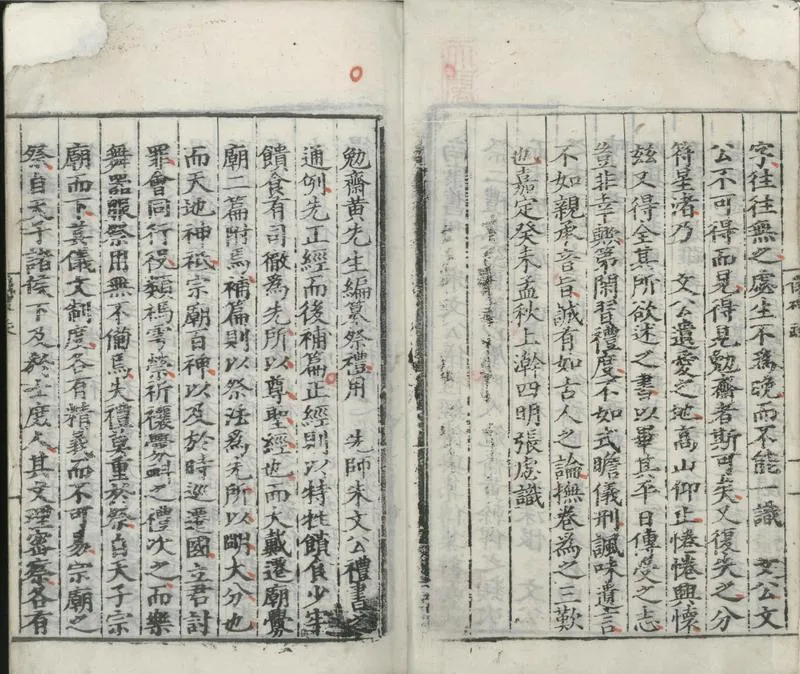 字往往無之處生不為晚而不能一識 文公文
公不可得而見得見勉齋者斯可矣又復失之分
符星渚乃 文公遺愛之地高山仰止惓惓興懷
玆又得全其所欲述之書以畢其平日傳受之志
豈非幸歟第閒習禮度不如式瞻儀刑諷味遺言
不如親承音旨誠有如古人之論撫卷為之三歎
也嘉定癸未孟秋上澣四明張虙識
勉齋黃先生編纂祭禮用 先師朱文公禮書之
通例先正經而後補篇正經則以特牲饋食少牢
饋食有司徹為先所以尊聖經也而大戴遷廟釁
廟二篇附焉補篇則以祭法為先所以明大分也
而天地神祇宗廟百神以及於時巡遷國立君討
罪會同行役類禡雩禜祈禳釁衈之禮次之而樂
舞器服祭用無不備焉夫禮莫重於祭自天子宗
廟而下其儀文制度各有精義而不可易宗廟之
祭自天子諸侯下及於士庶人其文理密察各有